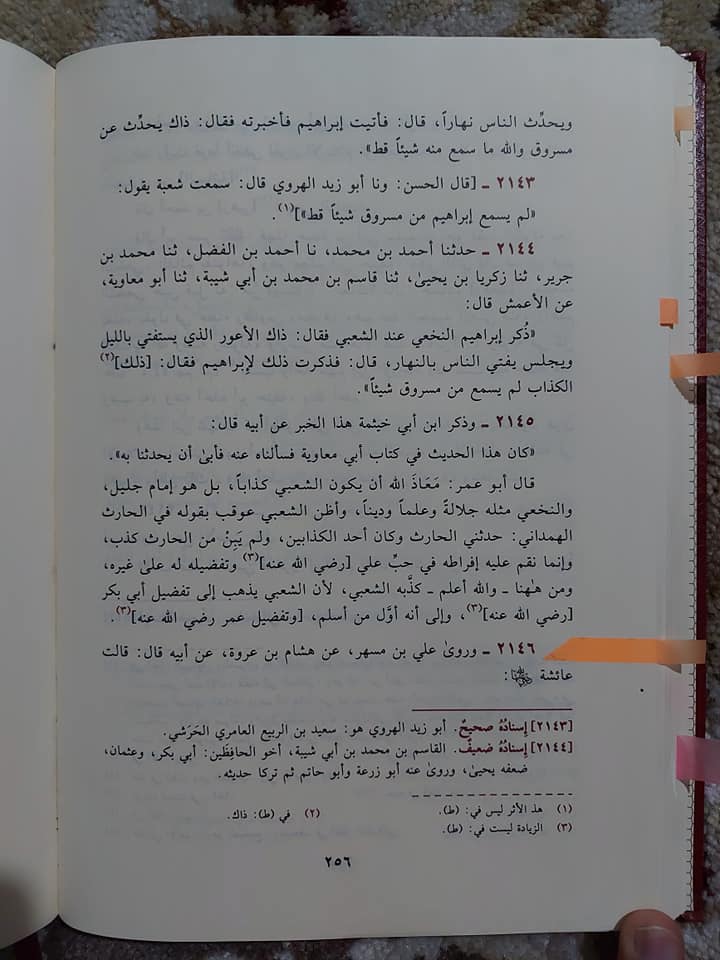 ويحدِّث الناس نهاراً، قال: فأتيت إبراهيم فأخبرته فقال: ذاك يحدِّث عن
مسروق والله ما سمع منه شيئاً قط».
٢١٤٣ ـ [قال الحسن: ونا أبو زيد الهروي قال: سمعت شعبة يقول:
«لم يسمع إبراهيم من مسروق شيئاً قط»](١).
٢١٤٤ ـ حدثنا أحمد بن محمد، نا أحمد بن الفضل، ثنا محمد بن
جرير، ثنا زكريا بن يحيىٰ، ثنا قاسم بن محمد بن أبي شيبة، ثنا أبو معاوية،
عن الأعمش قال:
«ذُكر إبراهيم النخعي عند الشعبي فقال: ذاك الأعور الذي يستفتي بالليل
ويجلس يفتي الناس بالنهار، قال: فذكرت ذلك لإبراهيم فقال: [ذلك](٢)
الكذاب لم يسمع من مسروق شيئاً».
٢١٤٥ ـ وذكر ابن أبي خيثمة هذا الخبر عن أبيه قال:
«كان هذا الحديث في كتاب أبي معاوية فسألناه عنه فأبىٰ أن يحدثنا به».
قال أبو عمر: مَعَاذَ الله أن يكون الشعبي كذاباً، بل هو إمام جليل،
والنخعي مثله جلالةً وعلماً وديناً، وأظن الشعبي عوقب بقوله في الحارث
الهمداني: حدثني الحارث وكان أحد الكذابين، ولم يَبِنْ من الحارث كذب،
وإنما نقم عليه إفراطه في حبِّ علي [رضي الله عنه](٣) وتفضيله له علىٰ غيره،
ومن هٰهنا ـ والله أعلم ـ كذَّبه الشعبي، لأن الشعبي يذهب إلى تفضيل أبي بكر
[رضي الله عنه](٣)، وإلى أنه أوَّل من أسلم، [وتفضيل عمر رضي الله عنه](٣).
٢١٤٦ ـ وروىٰ علي بن مسهر، عن هشام بن عروة، عن أبيه قال: قالت
عائشة رضي الله عنها:
[٢١٤٣] إسنادُهُ صحيحٌ. أبو زيد الهروي هو: سعيد بن الربيع العامري الحَرَشي.
[٢١٤٤] إسنادُهُ ضعيفٌ. القاسم بن محمد بن أبي شيبة، أخو الحافِظَين: أبي بكر، وعثمان،
ضعفه يحيىٰ، وروىٰ عنه أبو زرعة وأبو حاتم ثم تركا حديثه.
(١) هذ الأثر ليس في: (ط). (٢) في (ط): ذاك.
(٣) الزيادة ليست في: (ط).
٢٥٦